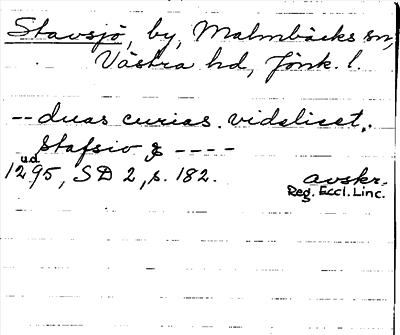 Stavsjö, by, Malmbäcks sn,
Västra hd, Jönk. l.
-- duas curias. videlicet,.
Stafsio & ----
u.d.
1295, SD 2, s. 182.
avskr.
Reg. Eccl. Linc.